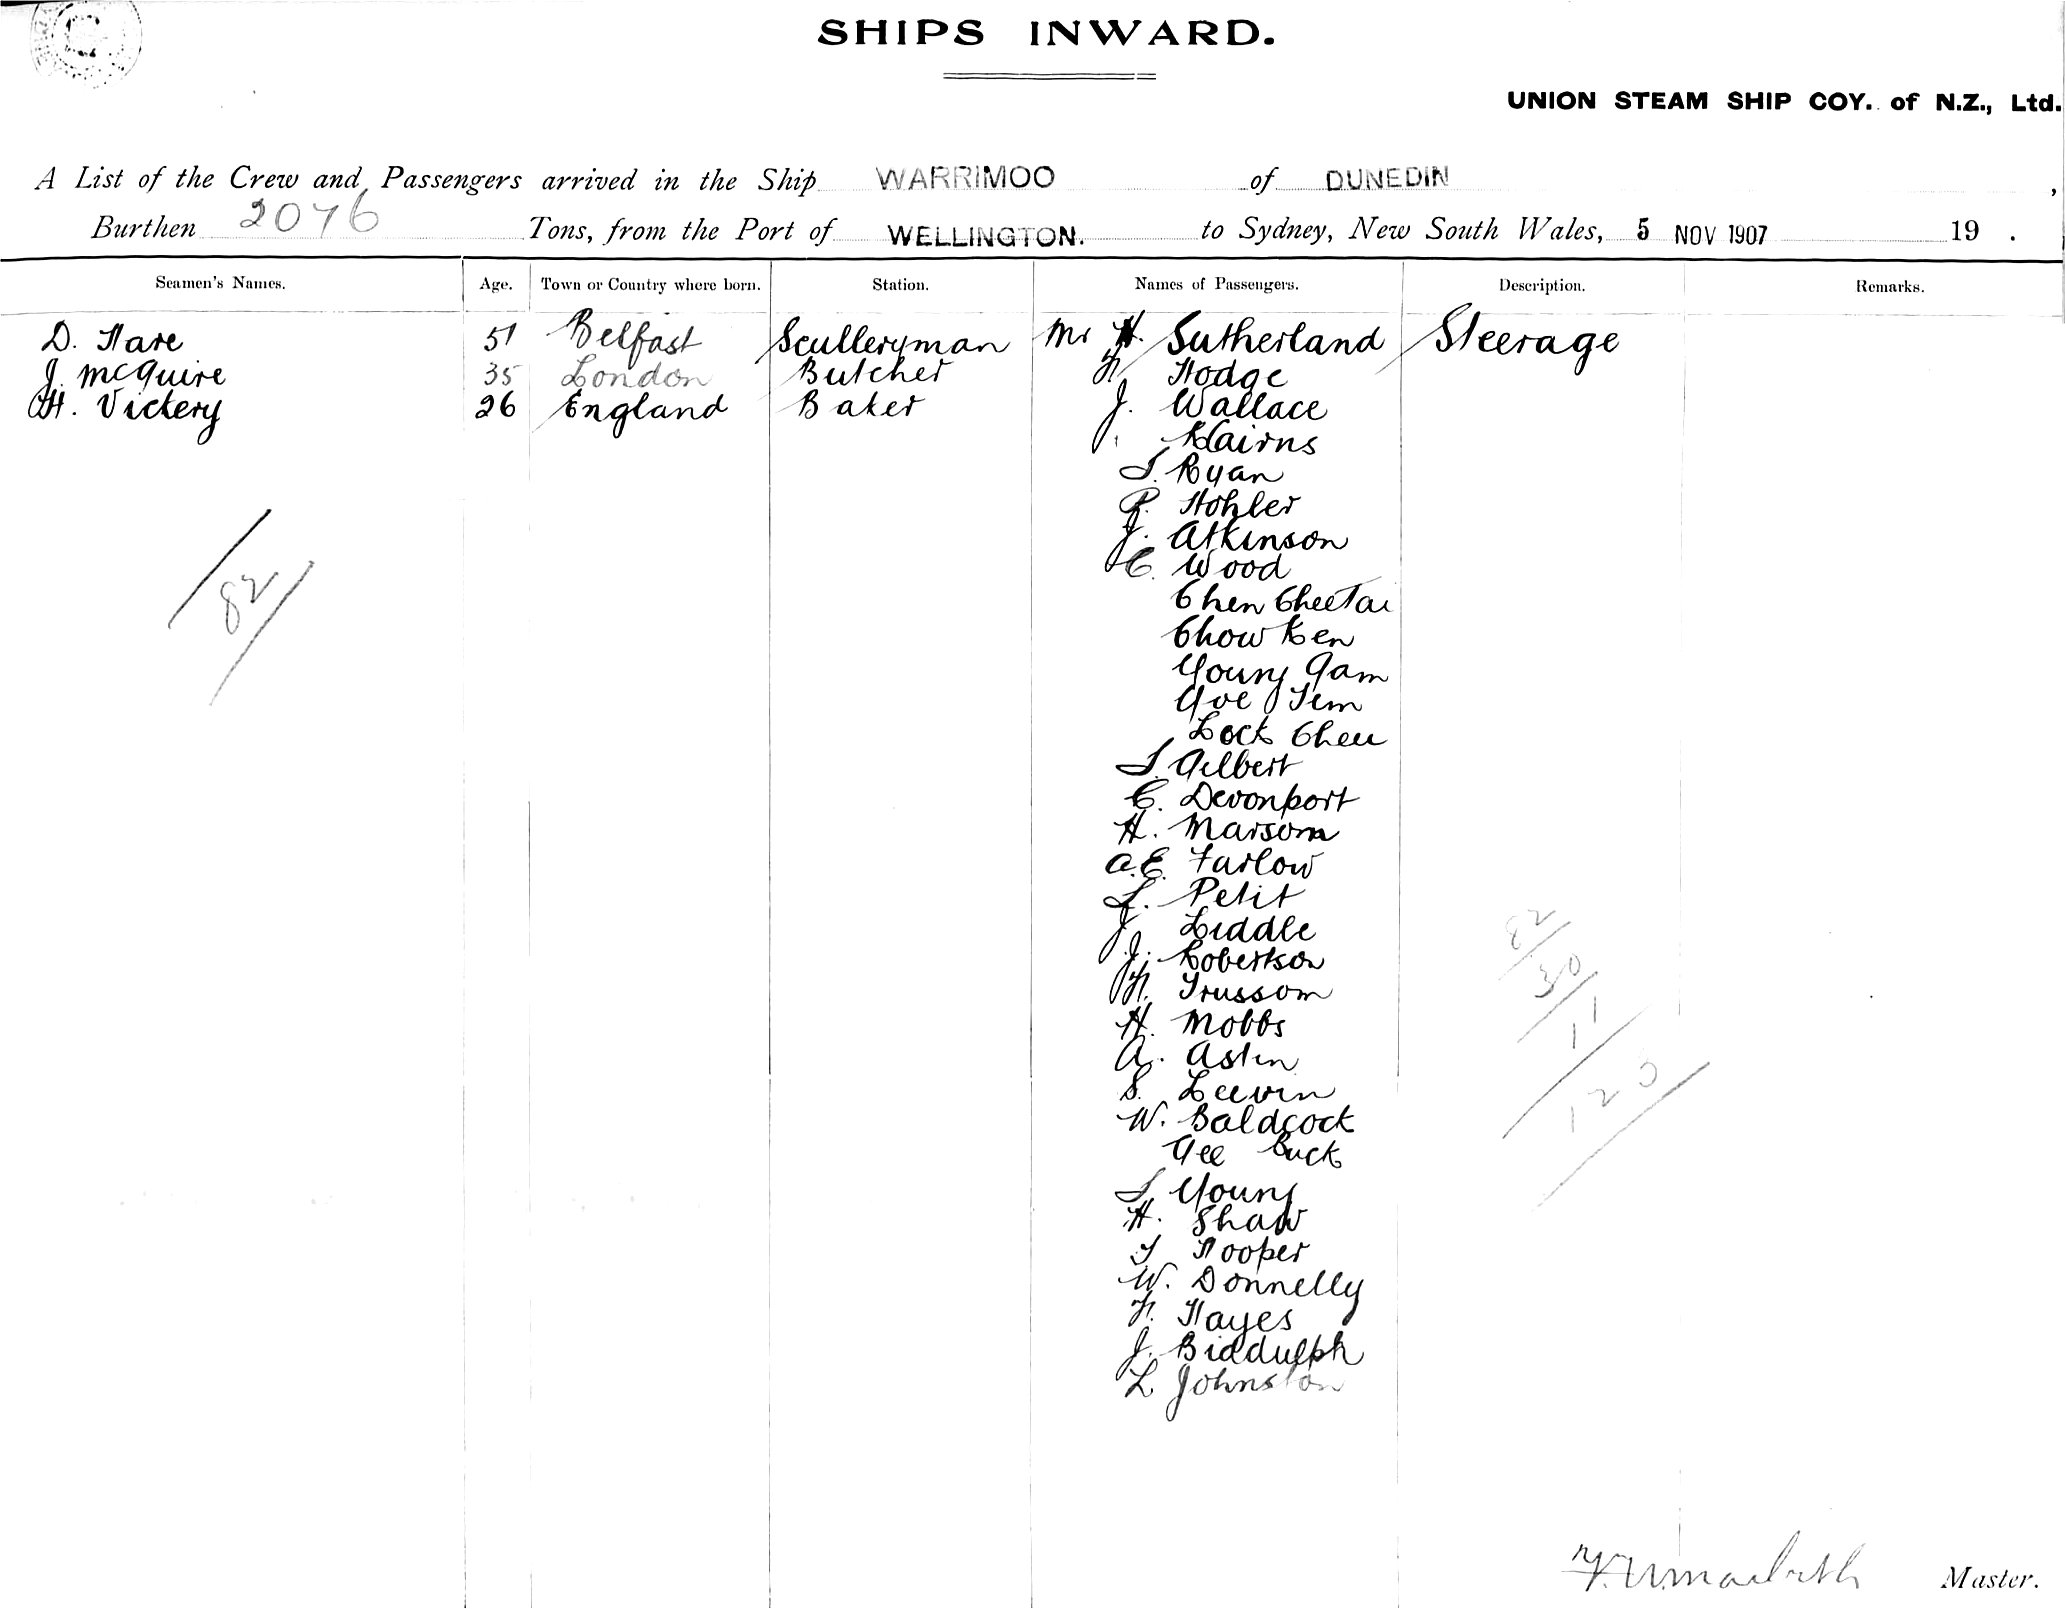 SHIPS INWARD.
UNION STEAM SHIP COY. of N.Z., Ltd.
A List of the Crew and Passengers arrived in the Ship WARRIMOO of DUNEDIN ,
Burthen 2076 Tons, from the Port of WELLINGTON. to Sydney, New South Wales, 5 NOV 1907 19 .
Seamen's Names. Age. Town or Country where born. Station. Names of Passengers. Description. Remarks.
D. Hare 51 Belfast Sculleryman Mr H. Sutherland Steerage
J. McGuire 35 London Butcher F. Hodge
H. Vickery 26 England Baker J. Wallace
Kairns
T. Ryan
P. Hohler
J. Atkinson
C. Wood
Chen Chee Tai
Chow Ken
Young Gam
Yoe Tem
Lock Chee
T. Gilbert
C. Devonport
H. Marsom
A.E. Farlow
L. Petit
J. Liddle
J. Robertson
F. Trussom
H. Mobbs
A. Astin
S. Leevin
W. Baldcock
Gee Buck
T. Young
H. Shaw
T Hooper
W. Donnelly
F. Hayes
J. Biddulph
L Johnston
82
82
30
11
120
Master.